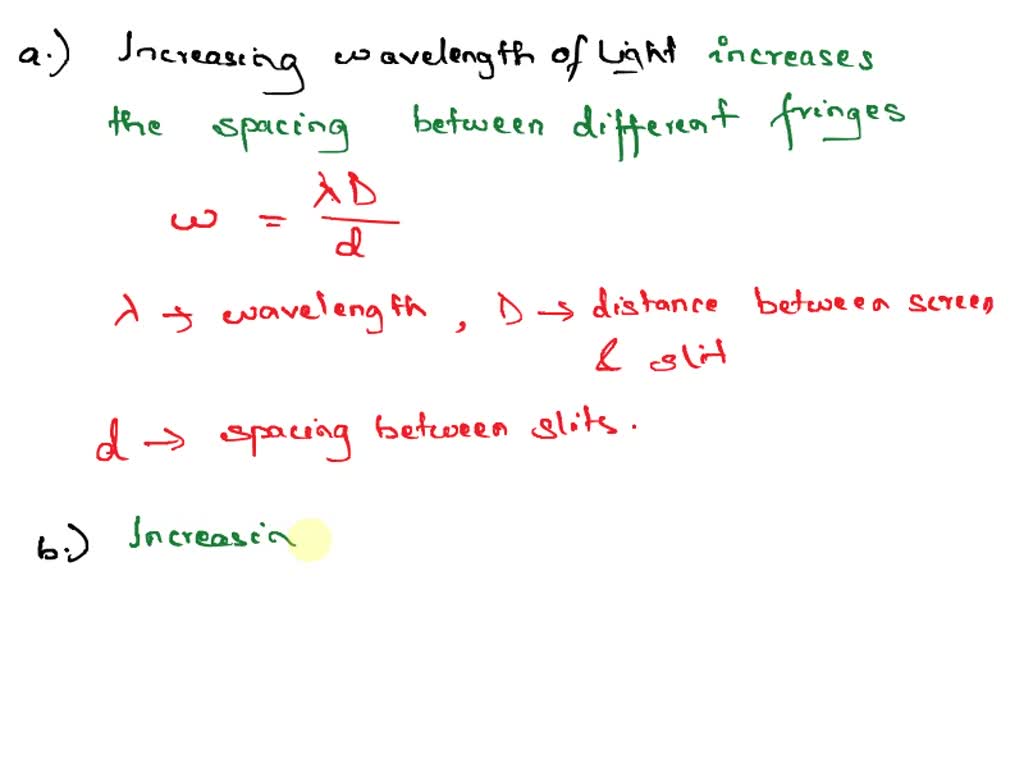 a.) Increasing wavelength of Light increases
the spacing between different fringes
ω = λD / d
λ → wavelength, D → distance between screen
& slit
d → spacing between slits.
b.) Increasin